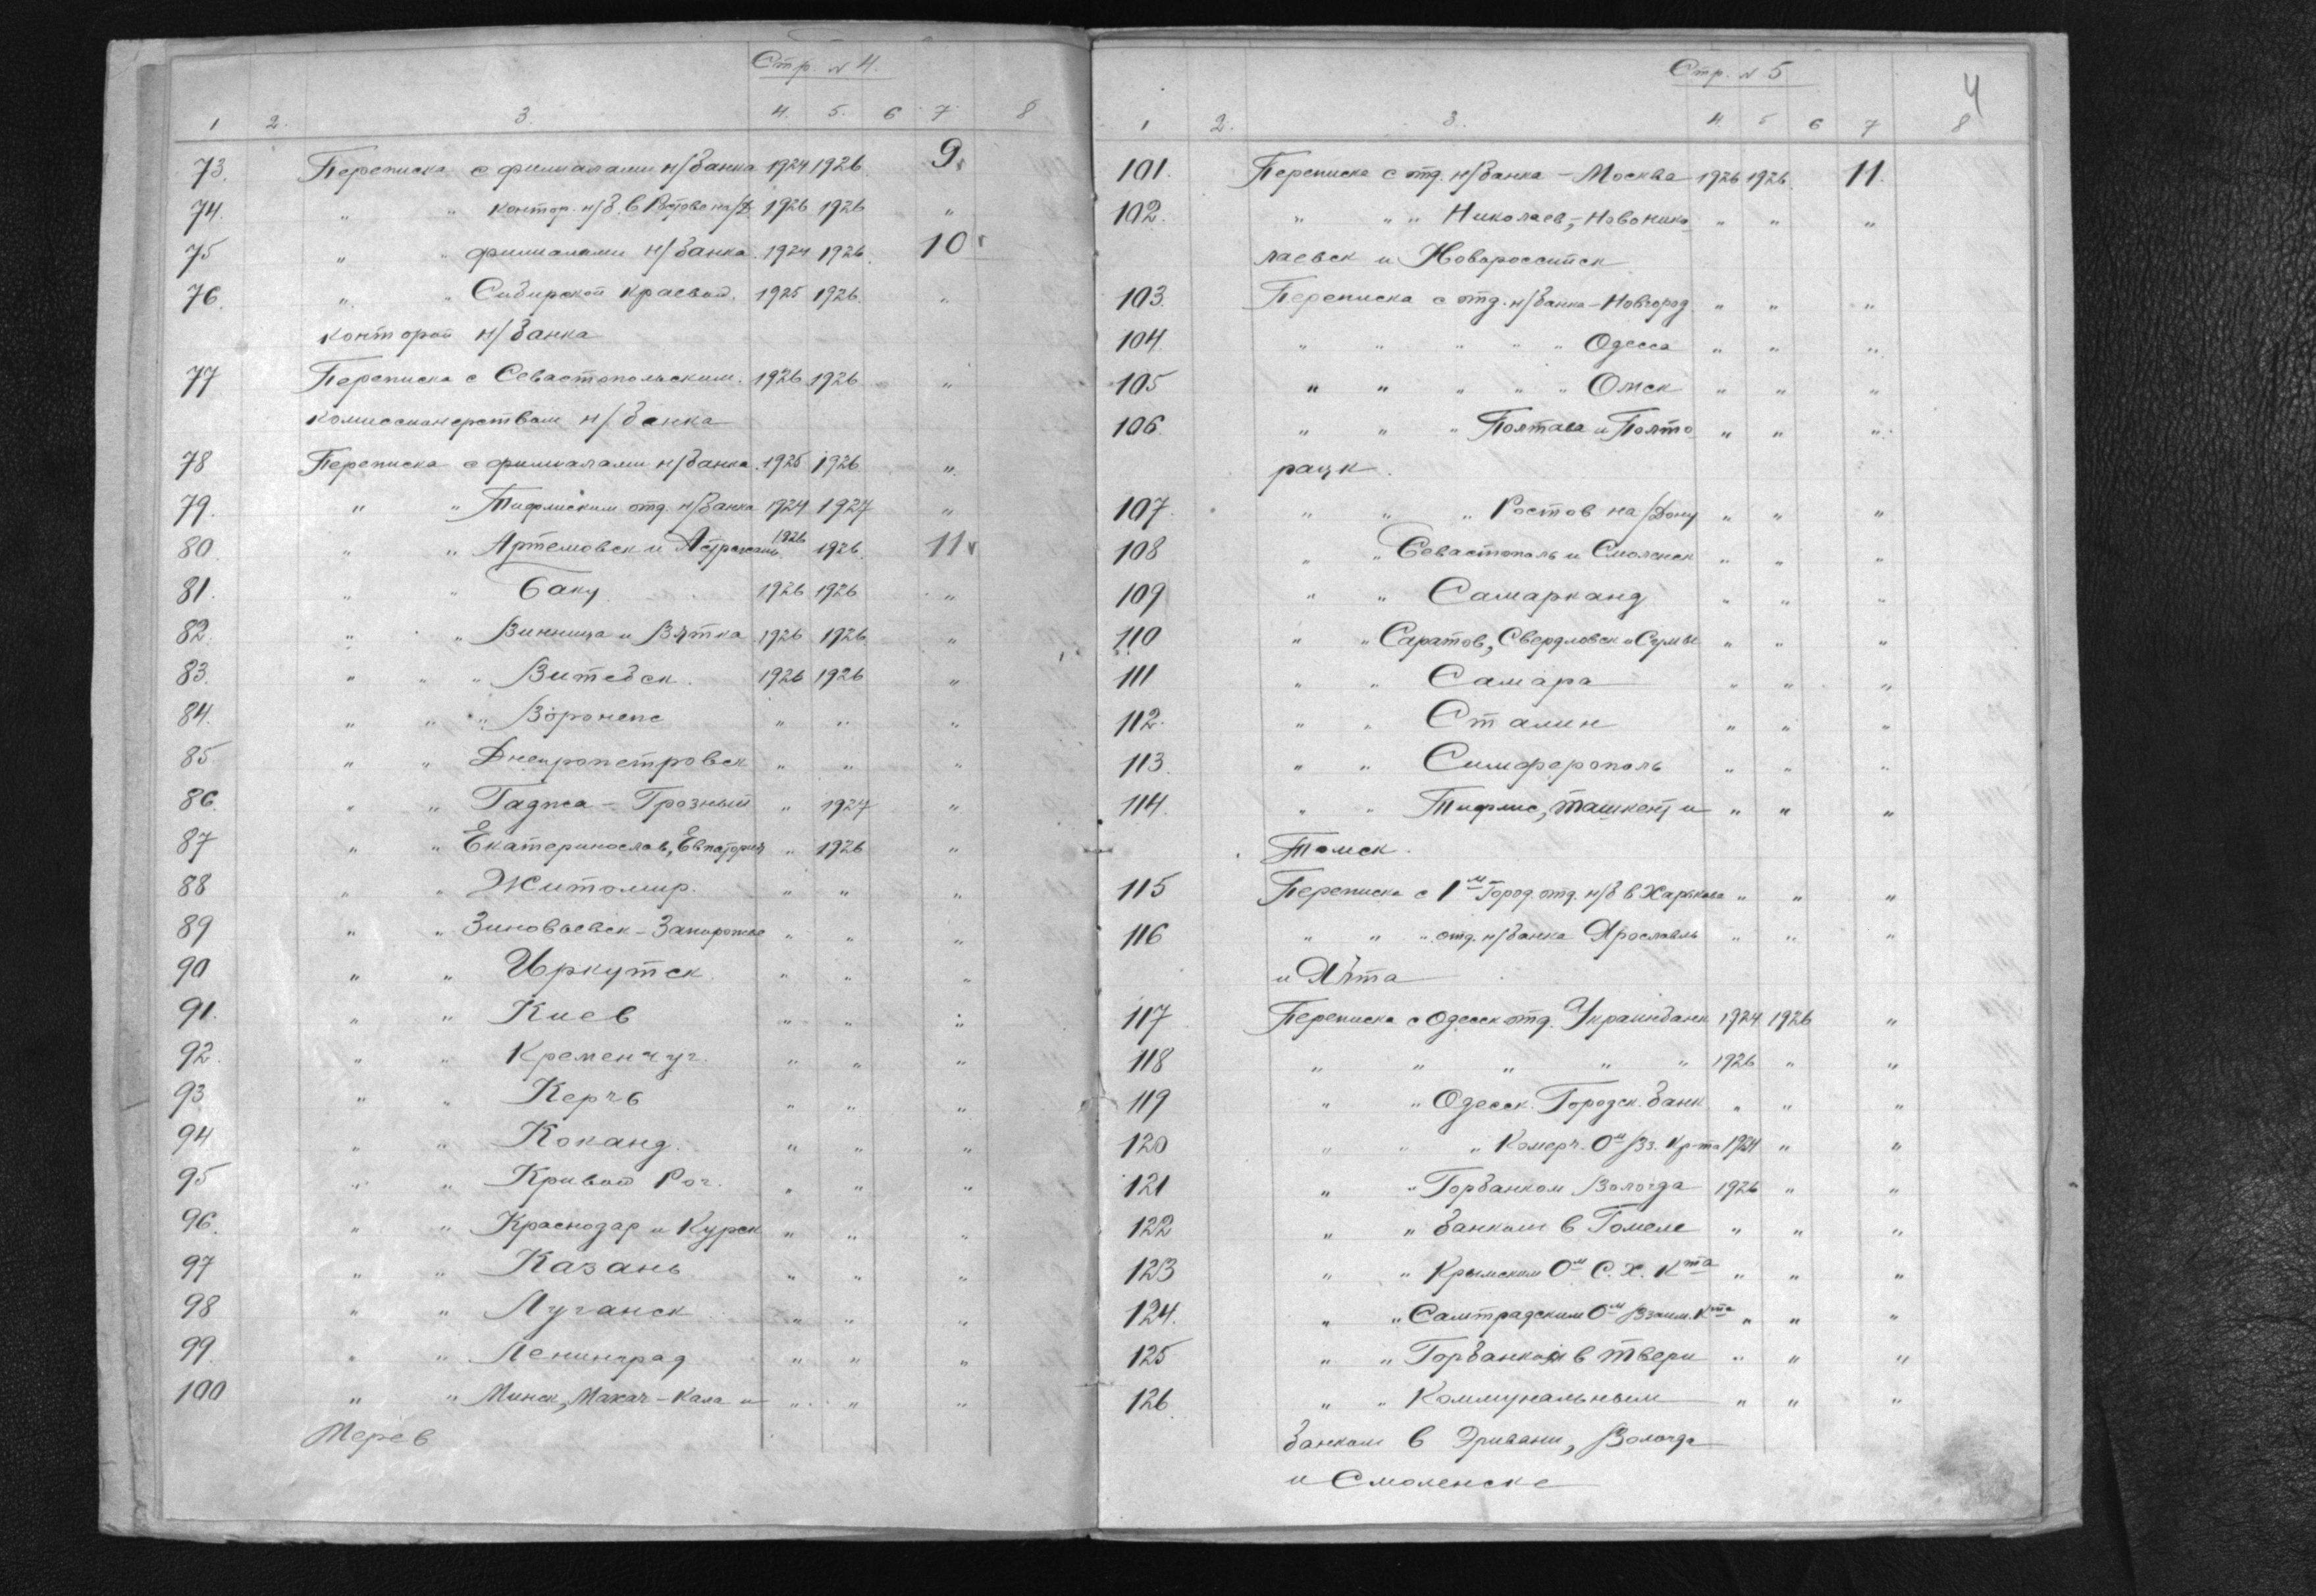 Стр. № 4.
1 2. 3. 4. 5. 6 7. 8
73. Переписка с филиалами н/банка 1924 1926. 9.
74. " " контор. н/б. в Ростове на/Д. 1926 1926 "
75 " " филиалами н/банка. 1924 1926. 10
76. " " Сибирской краевой. 1925 1926. "
конторой н/банка
77 Переписка с Севастопольским. 1926 1926 "
комиссионерством н/банка
78 Переписка с филиалами н/банка. 1925 1926 "
79. " " Тифлиским отд. н/банка 1924 1927 "
80. " " Артемовск и Астрахань. 1926 1926. 11
81. " " Баку 1926 1926 "
82. " " Винница и Вятка 1926 1926. "
83. " " " Витебск. 1926 1926 "
84. " " " Воронеж " " "
85 " " Днепропетровск " " "
86. " " Гаджа - Грозный " 1927 "
87 " " Екатеринослав, Евпатория " 1926 "
88 " " Житомир. " " "
89 " " Зиновьевск - Запорожье " " "
90 " " Иркутск " " "
91. " " Киев " " "
92. " " Кременчуг. " " "
93 " " Керчь " " "
94 " " Коканд. " " "
95 " " Кривой Рог. " " "
96. " " Краснодар и Курск " " "
97 " " Казань " " "
98 " " Луганск " " "
99. " " Ленинград " " "
100 " " Минск, Махач-Кала и " " "
Мерв
Стр. № 5
4
1 2. 3. 4. 5 6 7 8
101. Переписка с отд. н/банка - Москва 1926 1926. 11.
102. " " " Николаев, - Новонико " " "
лаевск и Новороссийск
103. Переписка с отд. н/банка - Новгород " " "
104. " " " " " Одесса " " "
105 " " " " " Омск " " "
106. " " " Полтава и Полто " " "
рацк.
107. " " " Ростов на/Дону " " "
108 " " Севастополь и Смоленск " " "
109 " " Самарканд " " "
110 " " Саратов, Свердловск и Сумы " " "
111 " " Самара " " "
112. " " Сталин " " "
113. " " Симферополь " " "
114. " " Тифлис, Ташкент и " " "
Томск.
115 Переписка с 1м Город. отд. н/б в Харькове " " "
116 " " " отд. н/банка Ярославль " " "
и Ялта
117 Переписка с Одесск. отд. Украинбанк 1924 1926 "
118 " " " " " 1926 " "
119 " " Одесск. Городск. банк " " "
120 " " " Комерч. Ом Вз. Кр-та 1924 " "
121 " " Горбанком Вологда 1926 " "
122 " " банком в Гомеле " " "
123 " " Крымским Ом С. Х. Кта " " "
124. " " Ом Взаим. Кта " " "
125 " " Горбанком в Твери " " "
126. " " Коммунальным " " "
банком в Эривани, Вологда
и Смоленске